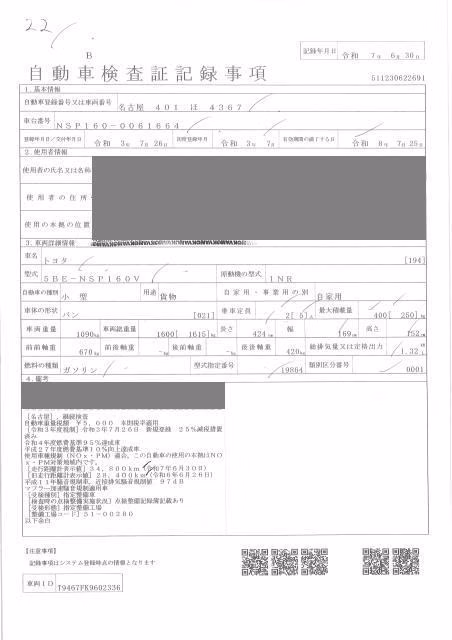 22
B
記録年月日 令和 7年 6月30日
自動車検査証記録事項
511230622691
1.基本情報
自動車登録番号又は車両番号 名古屋 401 ほ 4367
車台番号 NSP160-0061664
登録年月日/交付年月日 令和 3年 7月26日 初度登録年月 令和 3年 7月 有効期間の満了する日 令和 8年 7月25日
2.使用者情報
使用者の氏名又は名称
使用者の住所
使用の本拠の位置
3.車両詳細情報
車名 トヨタ [194]
型式 5BE-NSP160V 原動機の型式 1NR
自動車の種別 小型 用途 貨物 自家用・事業用の別 自家用
車体の形状 バン [021] 乗車定員 2[ 5]人 最大積載量 400[ 250]kg
車両重量 1090kg 車両総重量 1600[ 1615]kg 長さ 424cm 幅 169cm 高さ 152cm
前前軸重 670kg 前後軸重 -kg 後前軸重 -kg 後後軸重 420kg 総排気量又は定格出力 1.32 kW L
燃料の種類 ガソリン 型式指定番号 19864 類別区分番号 0001
4.備考
[名古屋],継続検査
自動車重量税額 ¥5,000 本則税率適用
[令和3年度税制]令和3年7月26日 新規登録 25%減税措置
済み
令和4年度燃費基準95%達成車
平成27年度燃費基準10%向上達成車
使用車種規制(NOx・PM)適合,この自動車の使用の本拠はNO
x・PM対策地域内です。
[走行距離計表示値]34,800km(令和7年6月30日)
[旧走行距離計表示値]28,400km(令和6年6月26日)
平成11年騒音規制車,近接排気騒音規制値 97dB
マフラー加速騒音規制適用車
[受検種別]指定整備車
[検査時の点検整備実施状況]点検整備記録簿記載あり
[受検形態]指定整備工場
[整備工場コード]51-00280
以下余白
[注意事項]
記録事項はシステム登録時点の情報となります
車両ID T9467FK9602336